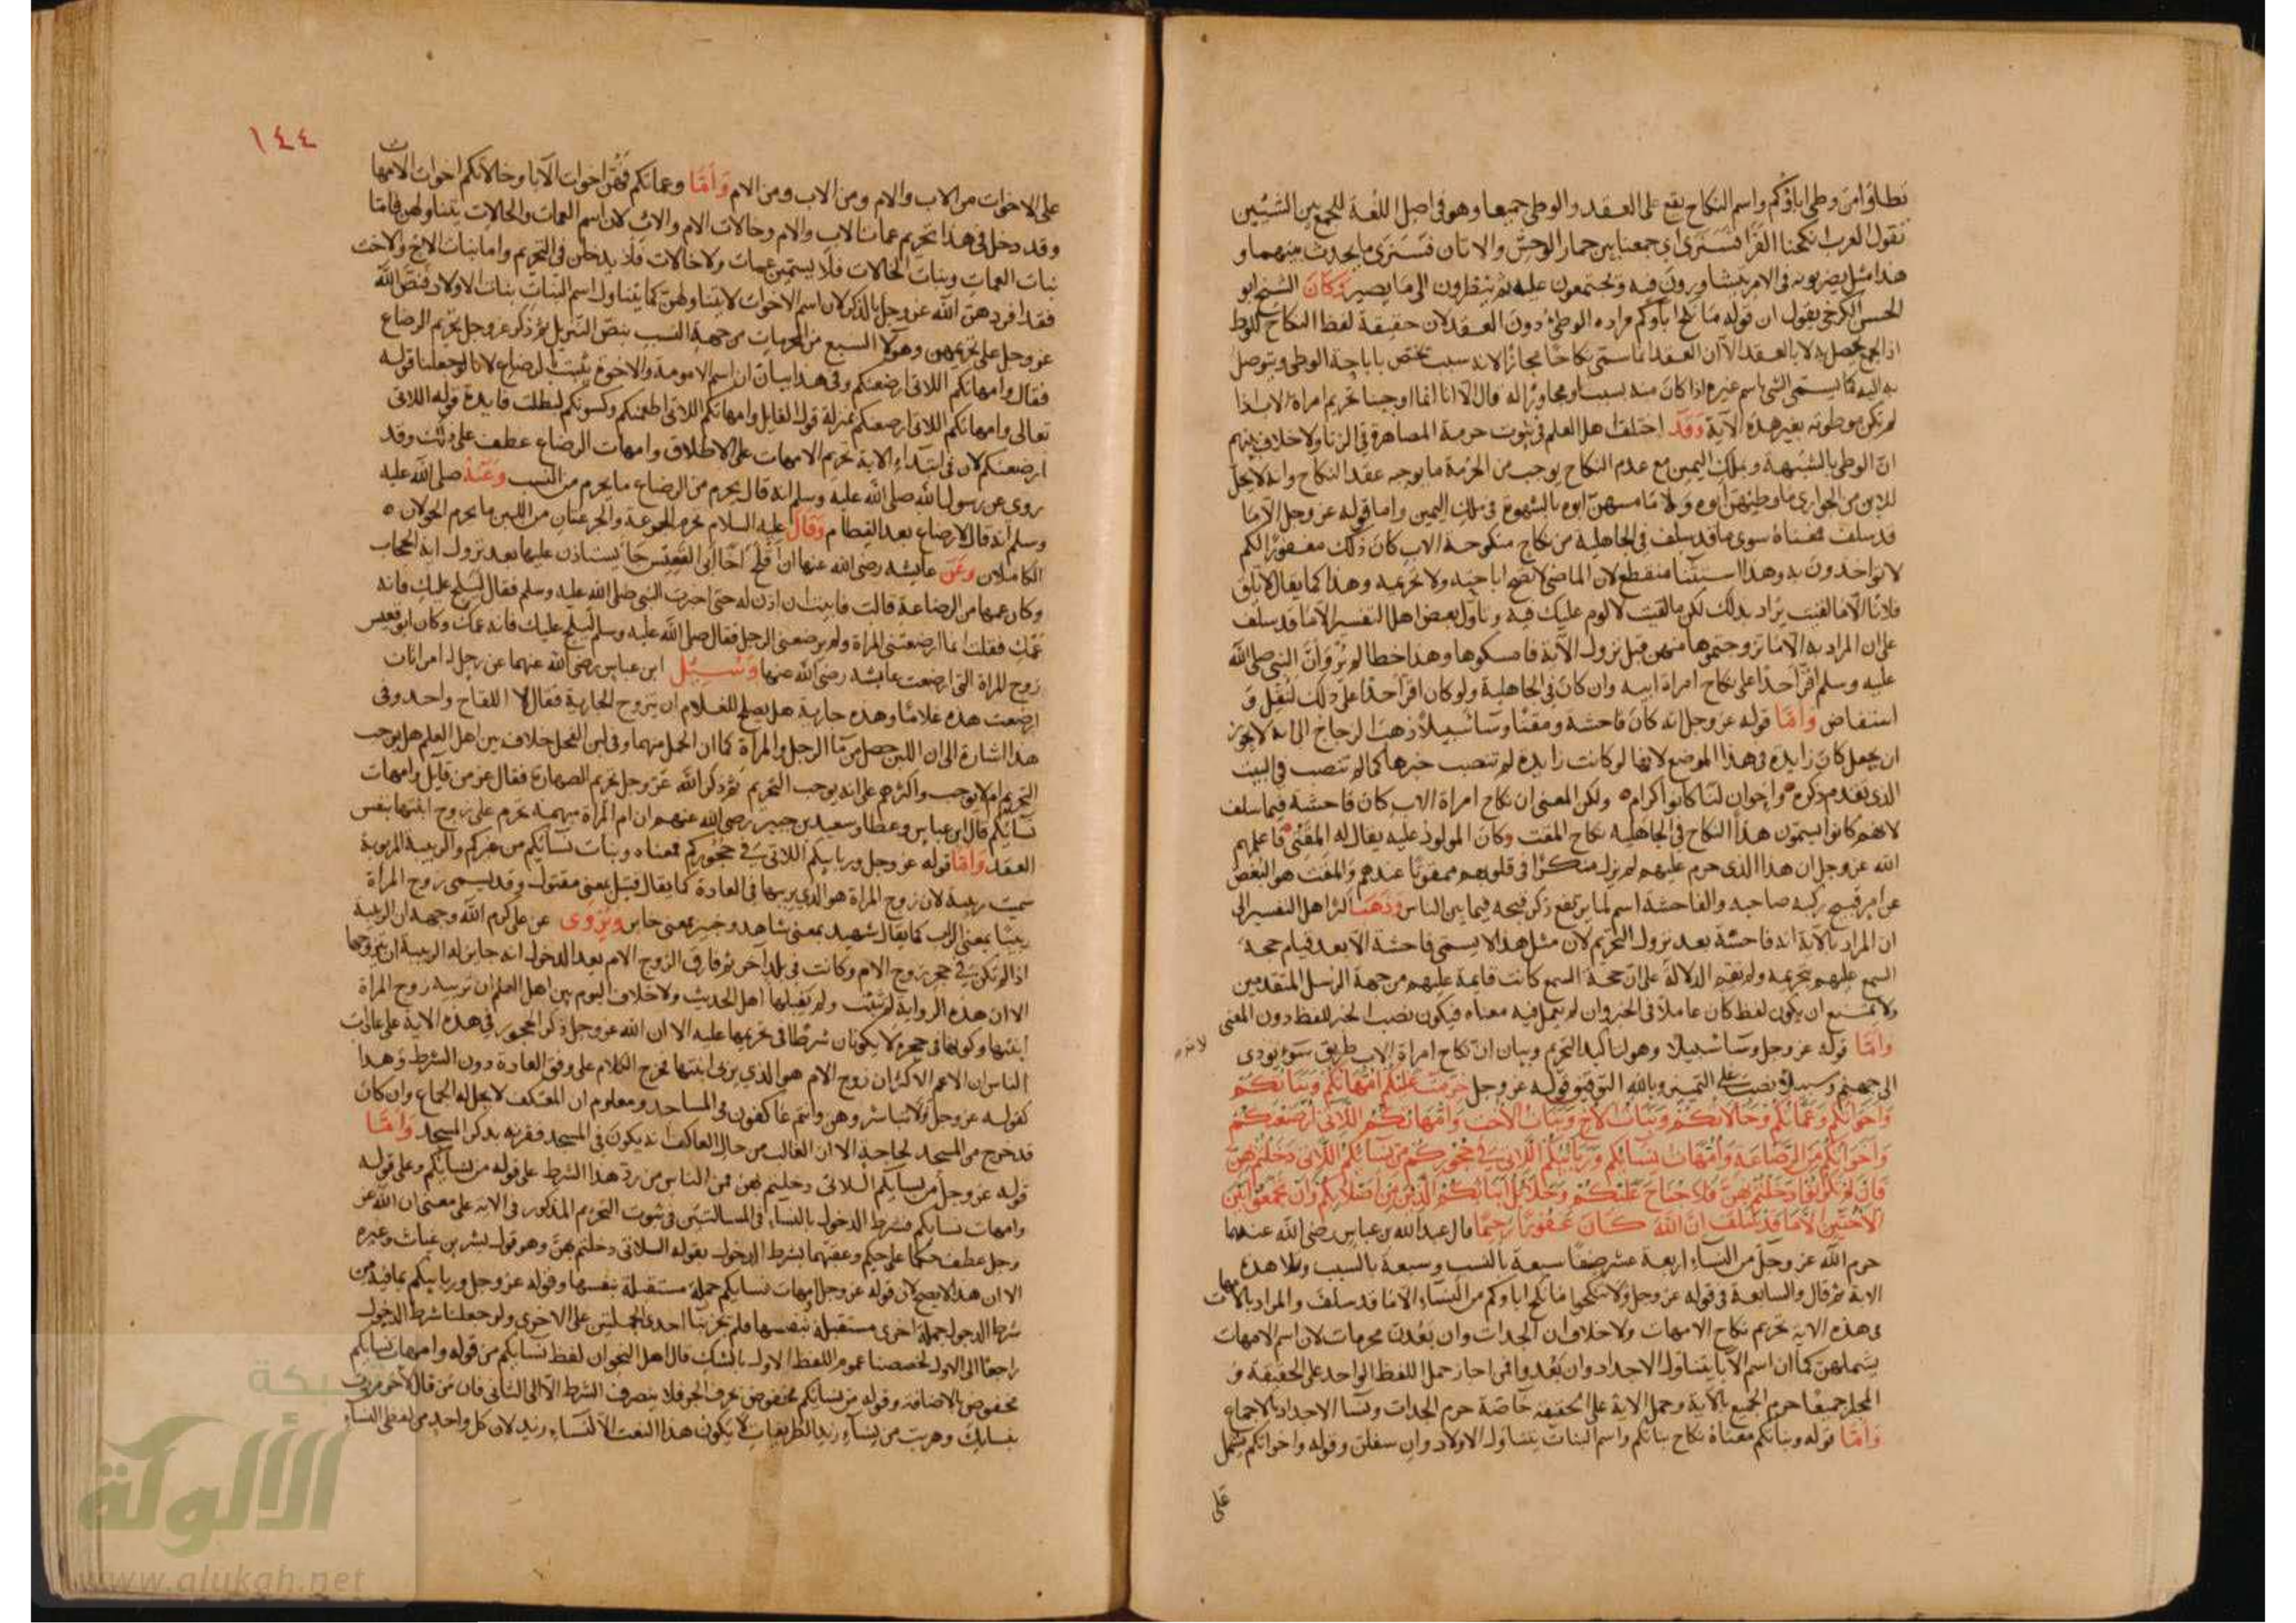 تطلوا من وطى اباؤكم واسم النكاح يقع على العقد والوطى جميعا وهو فى اصل اللغة للجمع بين الشيئين
تقول العرب انكحنا الفرا فسترى اى جمعنا بين حمار الوحش والاتان فسترى ما يحدث منهما و
هذا مثل يضربونه فى الامر يتشاورون فيه ويجتمعون عليه ثم ينظرون الى ما يصير وكان الشيخ ابو
الحسن الكرخى يقول ان قوله ما نكح اباؤكم مراده الوطئ دون العقد لان حقيقة لفظ النكاح للوطئ
اذ الجمع يحصل به لا بالعقد الا ان العقد انما سمى نكاحا مجازا لانه سبب تختص باباحة الوطى ويتوصل
به اليه كما يسمى الشى باسم غيره اذا كان منه بسبب او مجاورا له قال الا انا انما اوجبنا تحريم امراة الاب اذا
لم تكن موطوئة بغير هذه الآية وقد اختلف اهل العلم فى ثبوت حرمة المصاهرة فى الزنا ولا خلاف بينهم
ان الوطى بالشبهة وبملك اليمين مع عدم النكاح يوجب من الحرمة ما يوجبه عقد النكاح وانه لا يحل
للابن من الجوارى ما وطيهن ابوه ولا ما مسهن ابوه بالشهوة فى ملك اليمين واما قوله عز وجل الا ما
قد سلف فمعناه سوى ما قد سلف فى الجاهلية من نكاح منكوحة الاب كان ذلك مغفورا لكم
لا تواخذون به وهذا استثنا منقطع لان الماضى لا تصح اباحته ولا تحريمه وهذا كما يقال لا تلق
فلانا الا ما لقيت يراد بذلك لكن ما لقيت لا لوم عليك فيه وتاول بعض اهل التفسير الا ما قد سلف
على ان المراد به الا ما تزوجتموها منهن قبل نزول الآية فامسكوها وهذا خطا لم يرو ان النبى صلى الله
عليه وسلم اقر احدا على نكاح امراة ابيه وان كان فى الجاهلية ولو كان اقر احدا على ذلك لنقل و
استفاض واما قوله عز وجل انه كان فاحشة ومقتا وساء سبيلا ذهب الزجاج الى انه لا يجوز
ان يجعل كان زايدة فى هذا الموضع لانها لو كانت زايدة لم تنصب خبرها كما لم تنصب فى البيت
الذى تقدم ذكره واخوان لنا كانوا كرام ولكن المعنى ان نكاح امراة الاب كان فاحشة فيما سلف
لانهم كانوا يسمون هذا النكاح فى الجاهلية نكاح المقت وكان المولود عليه يقال له المقتى فاعلمهم
الله عز وجل ان هذا الذى حرم عليهم لم يزل منكرا فى قلوبهم ممقوتا عندهم والمقت هو البغض
عن امر قبيح ركبه صاحبه والفاحشة اسم لما يرتفع ذكر قبحه فيما بين الناس وذهب اكثر اهل التفسير الى
ان المراد بالآية انه فاحشة بعد نزول التحريم لان مثل هذا لا يسمى فاحشة الا بعد قيام حجة
السمع عليهم بتحريمه ولم تقم الدلالة على ان حجة السمع كانت قايمة عليهم من جهة الرسل المتقدمين
ولا يمتنع ان يكون لفظ كان عاملا فى الخبر وان لم يعمل فيه معناه فيكون نصب الخبر للفظ دون المعنى
واما قوله عز وجل وساء سبيلا وهو لتاكيد التحريم وبيان ان نكاح امراة الاب طريق سوء يودى
الى جهنم وسبيلا نصب على التمييز وبالله التوفيق قوله عز وجل حرمت عليكم امهاتكم وبناتكم
واخواتكم وعماتكم وخالاتكم وبنات الاخ وبنات الاخت وامهاتكم اللاتى ارضعنكم
واخواتكم من الرضاعة وامهات نسائكم وربائبكم اللاتى فى حجوركم من نسائكم اللاتى دخلتم بهن
فان لم تكونوا دخلتم بهن فلا جناح عليكم وحلائل ابنائكم الذين من اصلابكم وان تجمعوا بين
الاختين الا ما قد سلف ان الله كان غفورا رحيما قال عبد الله بن عباس رضى الله عنهما
حرم الله عز وجل من النساء اربعة عشر صنفا سبعة بالنسب وسبعة بالسبب وتلا هذه
الاية ثم قال والسابعة فى قوله عز وجل ولا تنكحوا ما نكح اباوكم من النساء الا ما قد سلف والمراد بالامهات
فى هذه الاية تحريم نكاح الامهات ولا خلاف ان الجدات وان بعدن محرمات لان اسم الامهات
يشملهن كما ان اسم الآبا يتناول الاجداد وان بعدوا فمن اجاز حمل اللفظ الواحد على الحقيقة و
المجاز جميعا حرم الجميع بالآية وحمل الاية على الحقيقة خاصة حرم الجدات ونسا الاجداد بالاجماع
واما قوله وبناتكم معناه نكاح بناتكم واسم البنات يتناول الاولاد وان سفلن وقوله واخواتكم يشمل
على
١٤٤
على الاخوات من الاب والام ومن الاب ومن الام واما وعماتكم فهن اخوات الآبا وخالاتكم اخوات الامهات
وقد دخل فى هذا تحريم عمات الاب والام وخالات الام والاب لان اسم العمات والخالات يتناولهن فاما
بنات العمات وبنات الخالات فلا يسمين عمات ولا خالات فلا يدخلن فى التحريم واما بنات الاخ والاخت
فقد افردهن الله عز وجل بالذكر لان اسم الاخوات لا يتناولهن كما يتناول اسم البنات بنات الاولاد فنص الله
عز وجل على تحريمهن وهولا السبع من المحرمات من جهة النسب بنص التنزيل ثم ذكر عز وجل تحريم الرضاع
فقال وامهاتكم اللاتى ارضعنكم وفى هذا بيان ان اسم الامومة والاخوة يثبت بالرضاع لانا لو جعلنا قوله
تعالى وامهاتكم اللاتى ارضعنكم بمنزلة قول القايل وامهاتكم اللاتى اطعمنكم وكسونكم لبطلت فايدة قوله اللاتى
ارضعنكم لان فى ابتداء الاية تحريم الامهات على الاطلاق وامهات الرضاع عطف على وقد
روى عن رسول الله صلى الله عليه وسلم انه قال يحرم من الرضاع ما يحرم من النسب وعنه صلى الله عليه
وسلم انه قال لا رضاع بعد الفطام وقال عليه السلام تحرم الجرعة والجرعتان من اللبن ما يحرم الحولان
الكاملان وعن عايشه رضى الله عنها ان افلح اخا ابى القعيس جا يستاذن عليها بعد نزول اية الحجاب
وكان عمها من الرضاعة قالت فابيت ان اذن له حتى اخبرت النبى صلى الله عليه وسلم فقال ليلج عليك فانه
عمك فقلت انما ارضعتنى المراة ولم يرضعنى الرجل فقال صلى الله عليه وسلم ليلج عليك فانه عمك وكان ابو قعيس
زوج المراة التى ارضعت عايشه رضى الله عنها وسئل ابن عباس رضى الله عنهما عن رجل له امراتان
ارضعت هذه غلاما وهذه جارية هل يصلح للغلام ان يتزوج الجارية فقال لا اللقاح واحد وفى
هذا اشارة الى ان اللبن حصل من ما الرجل والمراة كما ان الحمل منهما وفى لبن الفحل خلاف بين اهل العلم هل يوجب
التحريم ام لا يوجب واكثرهم على انه يوجب التحريم ثم ذكر الله عز وجل تحريم الصهارة فقال عز من قايل وامهات
نسائكم قال ابن عباس وعطا وسعيد بن جبير رضى الله عنهم ان ام المراة مبهمة تحرم على زوج ابنتها بنفس
العقد واما قوله عز وجل وربايبكم اللاتى فى حجوركم فمعناه وبنات نسائكم من غيركم والربيبة المربوبة
سميت ربيبة لان زوج المراة هو الذى يربيها فى العادة كما يقال قتيل بمعنى مقتول وقد يسمى زوج المراة
ربيبا بمعنى الراب كما يقال شهيد بمعنى شاهد وخبير بمعنى خابر ويروى عن على كرم الله وجهه ان الربيبة
اذا لم تكن فى حجر زوج الام وكانت فى بلد آخر ثم فارق الزوج الام بعد الدخول انه جايز له الربيبة ان يتزوجها
الا ان هذه الرواية لم تثبت ولم يقبلها اهل الحديث ولا خلاف اليوم بين اهل العلم ان تربية زوج المراة
ابنتها وكونها فى حجره لا يكونان شرطا فى تحريمها عليه الا ان الله عز وجل ذكر الحجور فى هذه الاية على عادات
الناس ان الاعم الاكثر ان زوج الام هو الذى يربى ابنتها فخرج الكلام على وفق العادة دون الشرط وهذا
كقوله عز وجل ولا تباشروهن وانتم عاكفون فى المساجد ومعلوم ان المعتكف لا يحل له الجماع وان كان
قد خرج من المسجد لحاجة الا ان الغالب من حال العاكف انه يكون فى المسجد فقرنه بذكر المسجد واما
قوله عز وجل من نسايكم اللاتى دخلتم بهن فمن الناس من رد هذا الشرط على قوله من نسايكم وعلى قوله
وامهات نسايكم فشرط الدخول بالنساء فى المسالتين فى ثبوت التحريم المذكور فى الاية على معنى ان الله عز
وجل عطف حكما على حكم وعقبهما بشرط الدخول بقوله اللاتى دخلتم بهن وهو قول بشر بن غياث وغيره
الا ان هذا لا يصح لان قوله عز وجل امهات نسايكم جملة مستقبلة بنفسها وقوله عز وجل وربايبكم بما فيه من
شرط الدخول جملة اخرى مستقبلة بنفسها فلم تبن احدى الجملتين على الاخرى ولو جعلنا شرط الدخول
راجعا الى الاول لخصصنا عموم اللفظ الاول بالشك قال اهل النحو ان لفظ نسايكم من قوله وامهات نسايكم
مخفوض بالاضافة وقوله من نسايكم مخفوض بحرف الجر فلا ينصرف الشرط الا الى الثانى فان من قال لآخر مررت
بنسايك وهربت من نساء زيد الظريفات لا يكون هذا النعت الا لنساء زيد لان كل واحد من لفظى النساء
شبكة
الألوكة
www.alukah.net